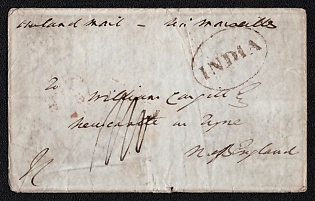 Overland Mail - via Marseilles
INDIA
To
William Cargill
Newcastle on Tyne
England